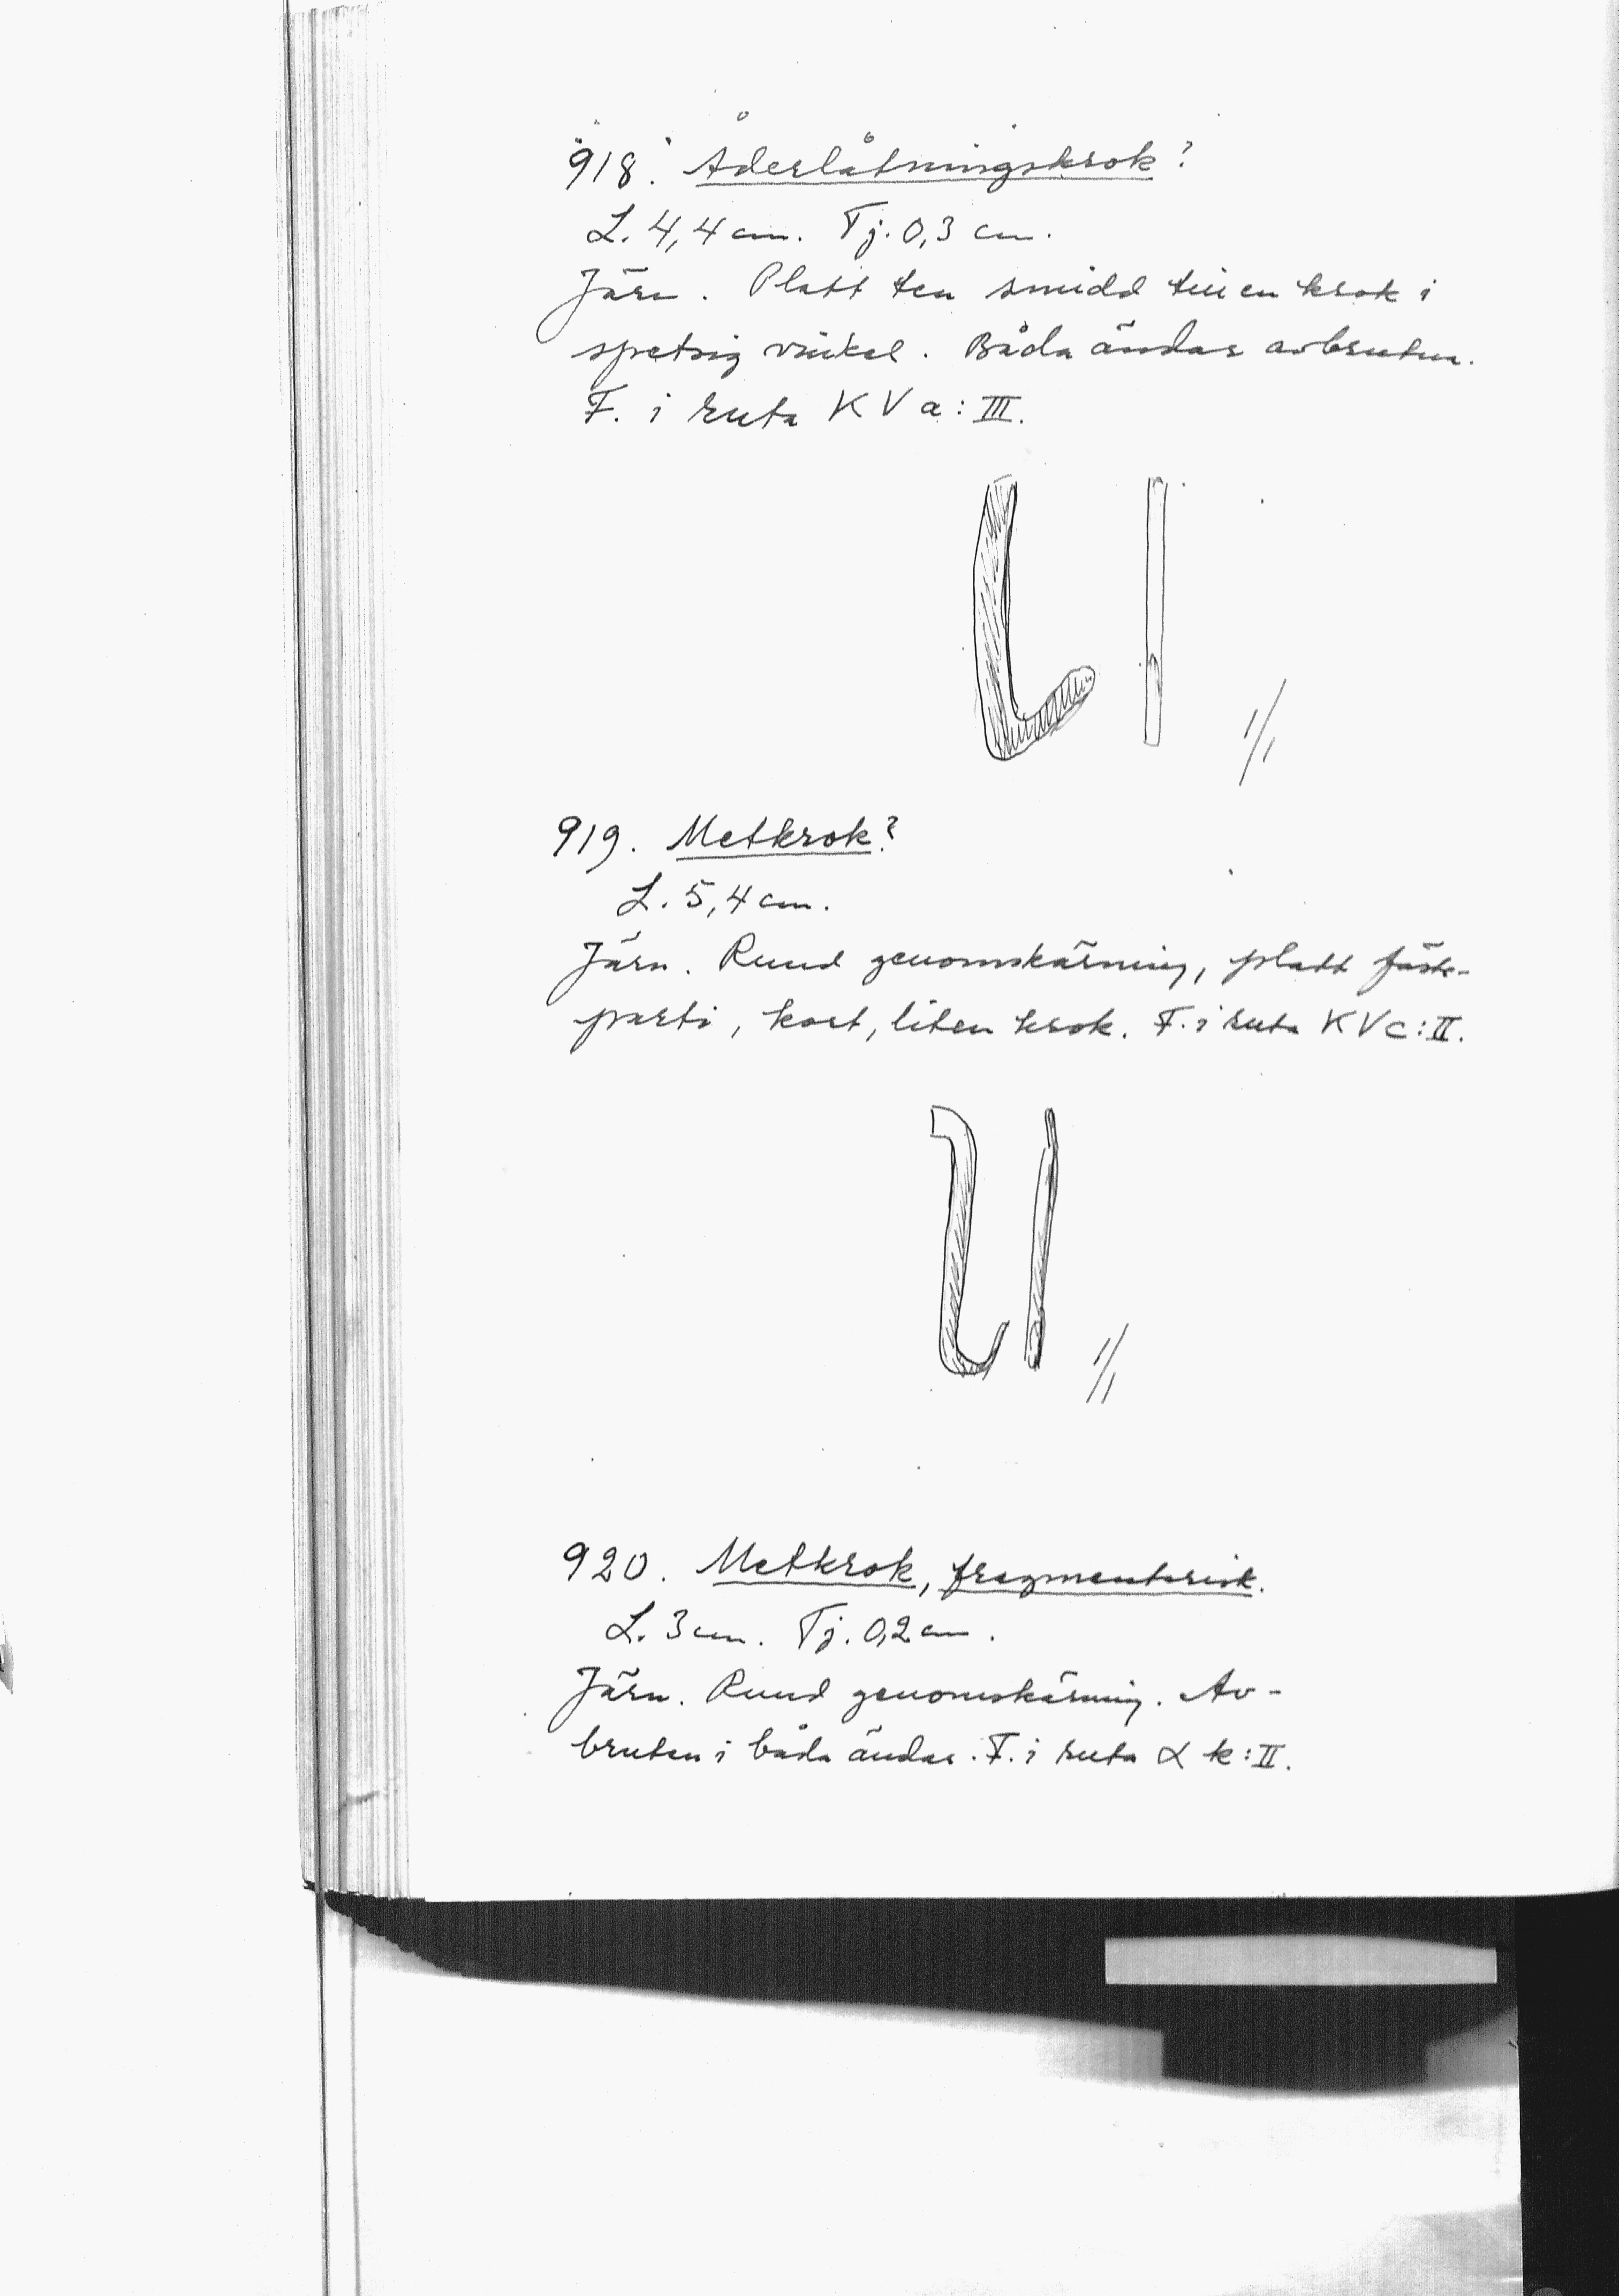 918. Åderlåtningskrok?
L. 4,4 cm. Tj. 0,3 cm.
Järn. Platt ten smidd till en krok i
spetsig vinkel. Båda ändar avbrutna.
F. i ruta K V a : III.
1/1
919. Metkrok?
L. 5,4 cm.
Järn. Rund genomskärning, platt fäste-
parti, kort, liten krok. F. i ruta K V c : II.
1/1
920. Metkrok, fragmentarisk.
L. 3 cm. Tj. 0,2 cm.
Järn. Rund genomskärning. Av-
bruten i båda ändar. F. i ruta α k : II.